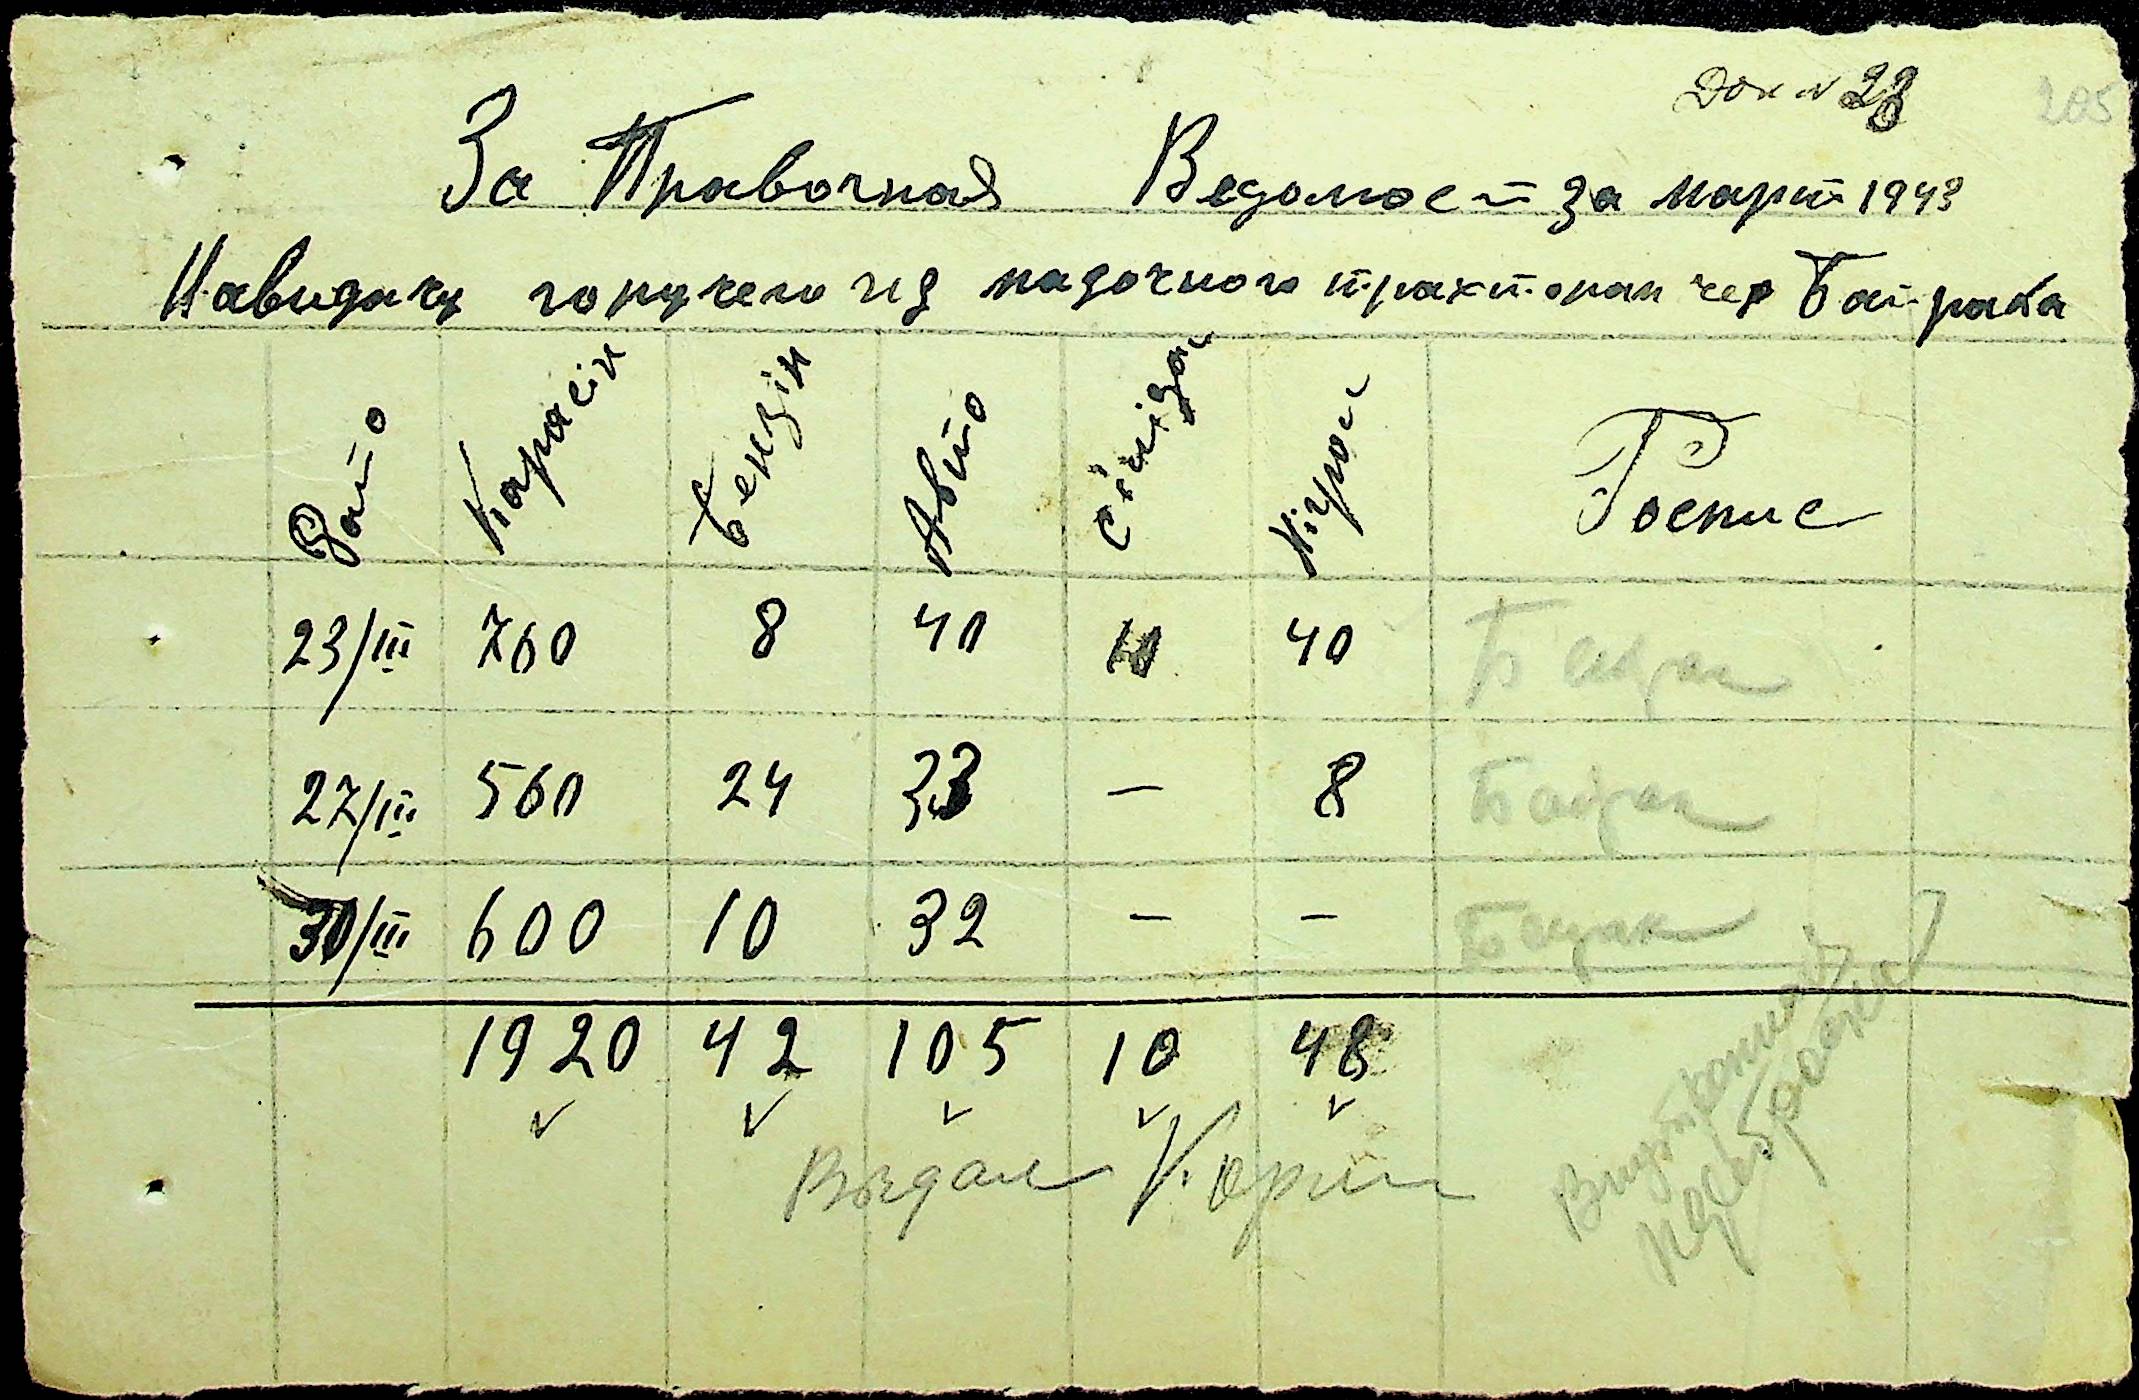 Док № 28 205
За Правочная Ведомост за март 1943
На видачу горучего из подочного тракторам чер Байрака
Дато Карасін Бензін Авто Сінідал Нігрол Роспис
23/III 760 8 40 10 40 Байрак
27/III 560 24 33 — 8 Байрак
30/III 600 10 32 — — Байрак
1920 42 105 10 48
Выдал